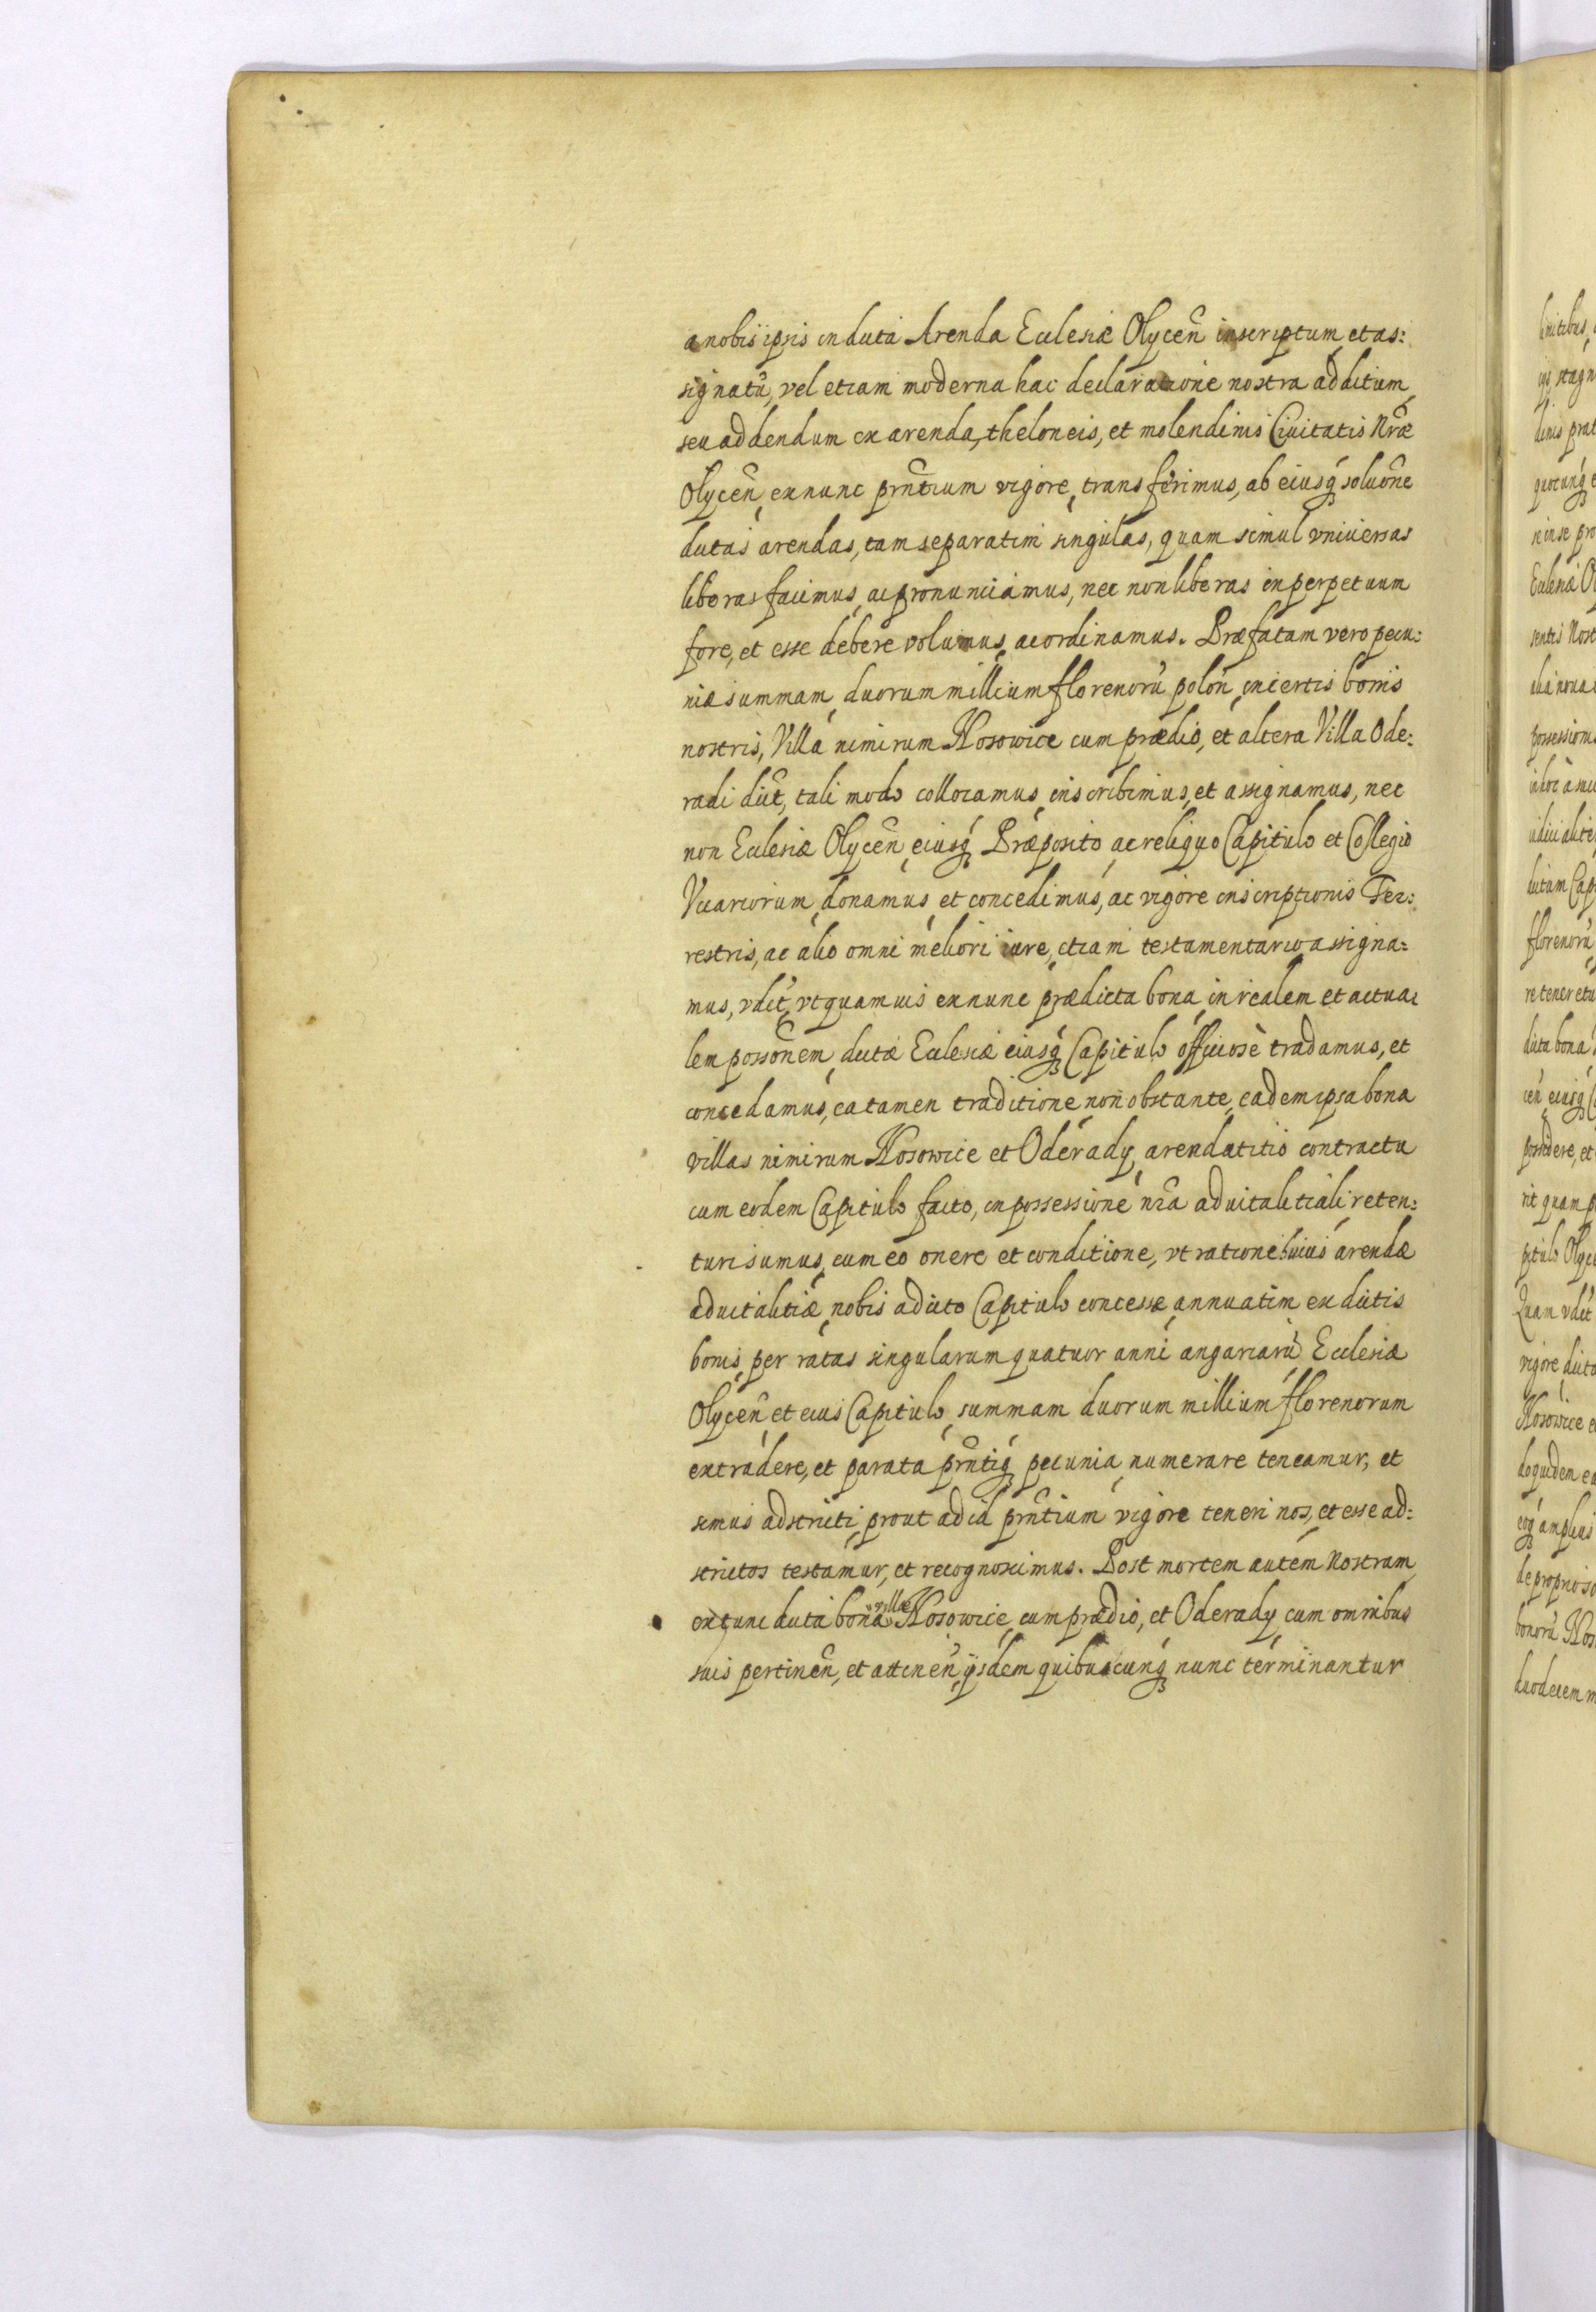 a nobis ipsis in dicta Arenda Ecclesiæ Olycen̄ inscriptum, et as:
signatũ, vel etiam moderna hac declaratione nostra additum
seu addendum ex arenda, theloneis, et molendinis Ciuitatis Nr̃æ
Olycen̄, ex nunc prñtium vigore, transferimus, ab eiusq́ꝫ soluc̃ne
dictas arendas, tam separatim singulas, quam simul vniuersas
liberas facimus, ac pronunciamus, nec non liberas in perpetuum
fore, et esse debere volumus, ac ordinamus. Præfatam vero pecu:
niæ summam, duorum millium florenorũ polon̄, in certis bonis
nostris, Villa nimirum Nosowice cum prædio, et altera Villa Ode:
radi dict̃, tali modo collocamus, inscribimus, et assignamus, nec
non Ecclesiæ Olycen̄, eiusq́ꝫ Præposito, ac reliquo Capitulo et Collegio
Vicariorum, donamus, et concedimus, ac vigore inscriptionis Ter:
restris, ac alio omni meliori iure, etiam testamentario assigna:
mus, vdlt̃, vt quamuis ex nunc prædicta bona, in realem et actua:
lem possõnem, dictæ Ecclesiæ eiusq́ꝫ Capitulo officiosè tradamus, et
concedamus, ea tamen traditione non obstante, eadem ipsa bona
villas nimirum Nosowice et Oderady, arendatitio contractu
cum eodem Capitulo facto, in possessione nr̃a aduitalitiali reten:
turi sumus, cum eo onere et conditione, vt ratione huius arendæ
aduitalitiæ, nobis a dicto Capitulo concessæ, annuatim ex dictis
bonis, per ratas singularum quatuor anni angariarũ, Ecclesiæ
Olycen̄, et eius Capitulo, summam duorum millium florenorum
extradere, et parata prñtiq́ꝫ pecunia, numerare teneamur, et
simus adstricti, prout ad id prñtium vigore teneri nos, et esse ad:
strictos testamur, et recognoscimus. Post mortem autem Nostram
ex tunc dicta bona villæ Nosowice, cum prædio, et Oderady, cum omnibus
suis pertinen̄, et attinen̄, ijsdem quibuscunq́ꝫ nunc terminantur